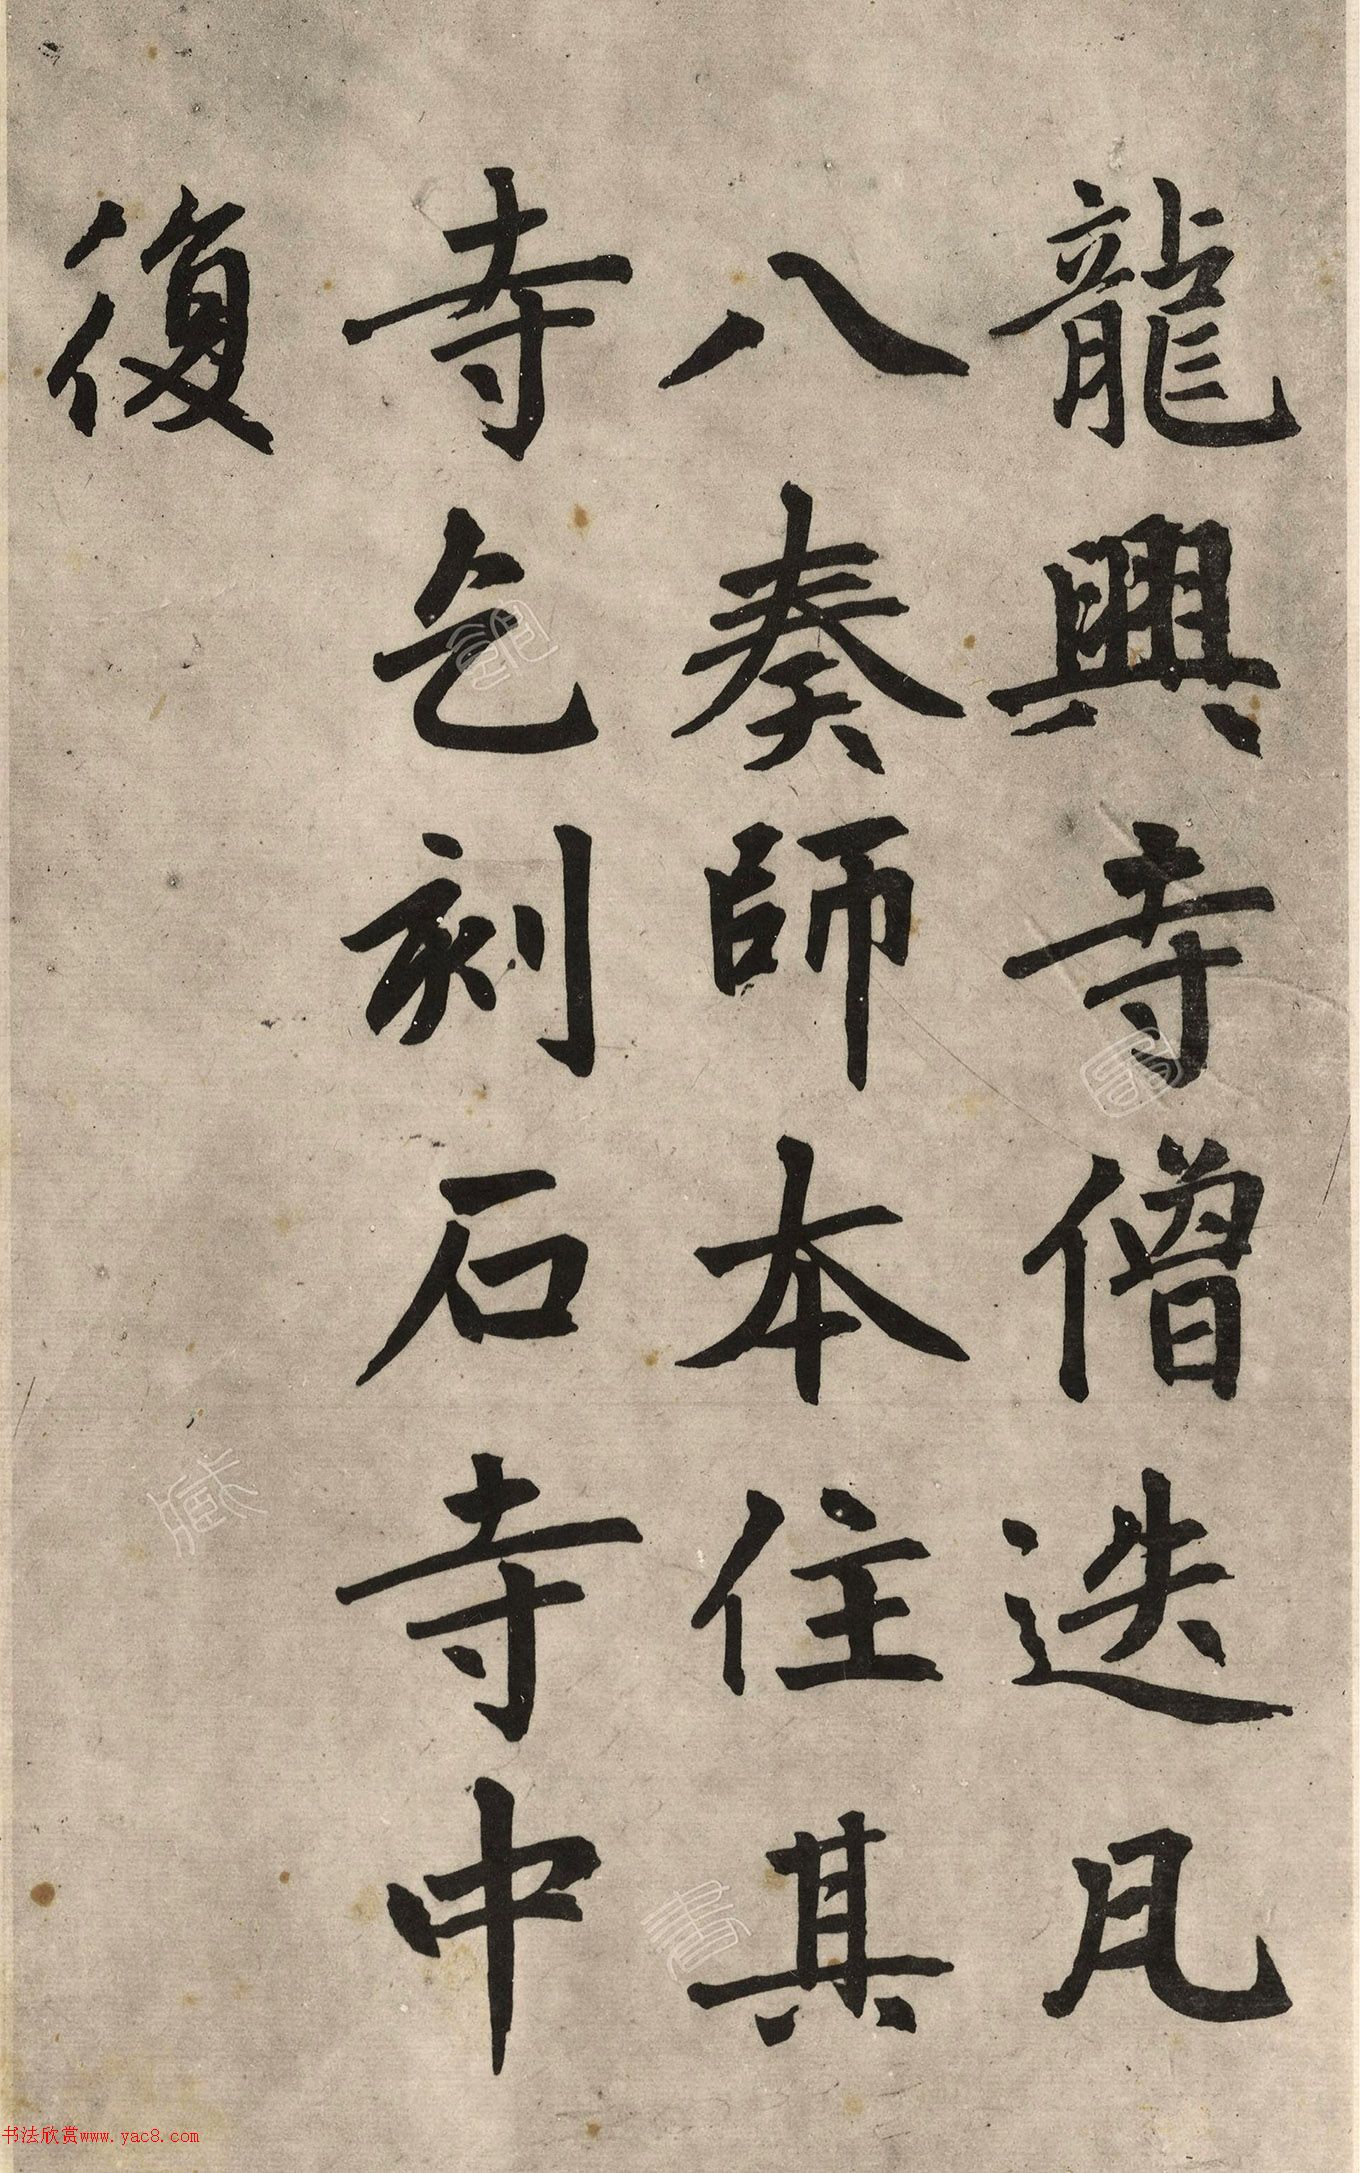 龍興寺僧迭凡
八奏師本住其
寺乞刻石寺中
復
书法欣赏www.yac8.com